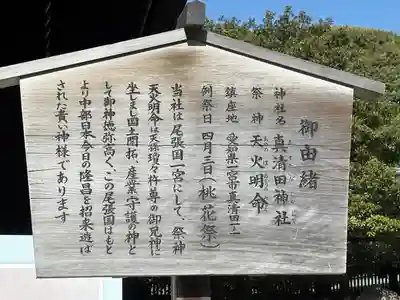 御由緒
神社名 真清田神社
祭神 天火明命
鎮座地 愛知県一宮市真清田一ー
例祭日 四月三日(桃花祭)
当社は尾張国一宮にして、祭神
天火明命は天孫瓊々杵尊の御兄神に
坐しまし国土開拓、産業守護の神と
して御神徳弥高く、この尾張国はもと
より中部日本今日の隆昌を招来遊ば
された貴い神様であります